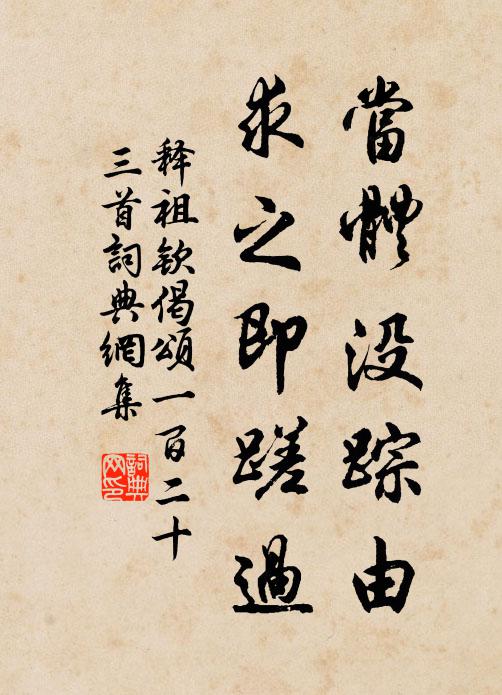 當體没踪由
求之即蹉過
释祖欽偈頌一百二十
三首詞典網集
詞典
网印